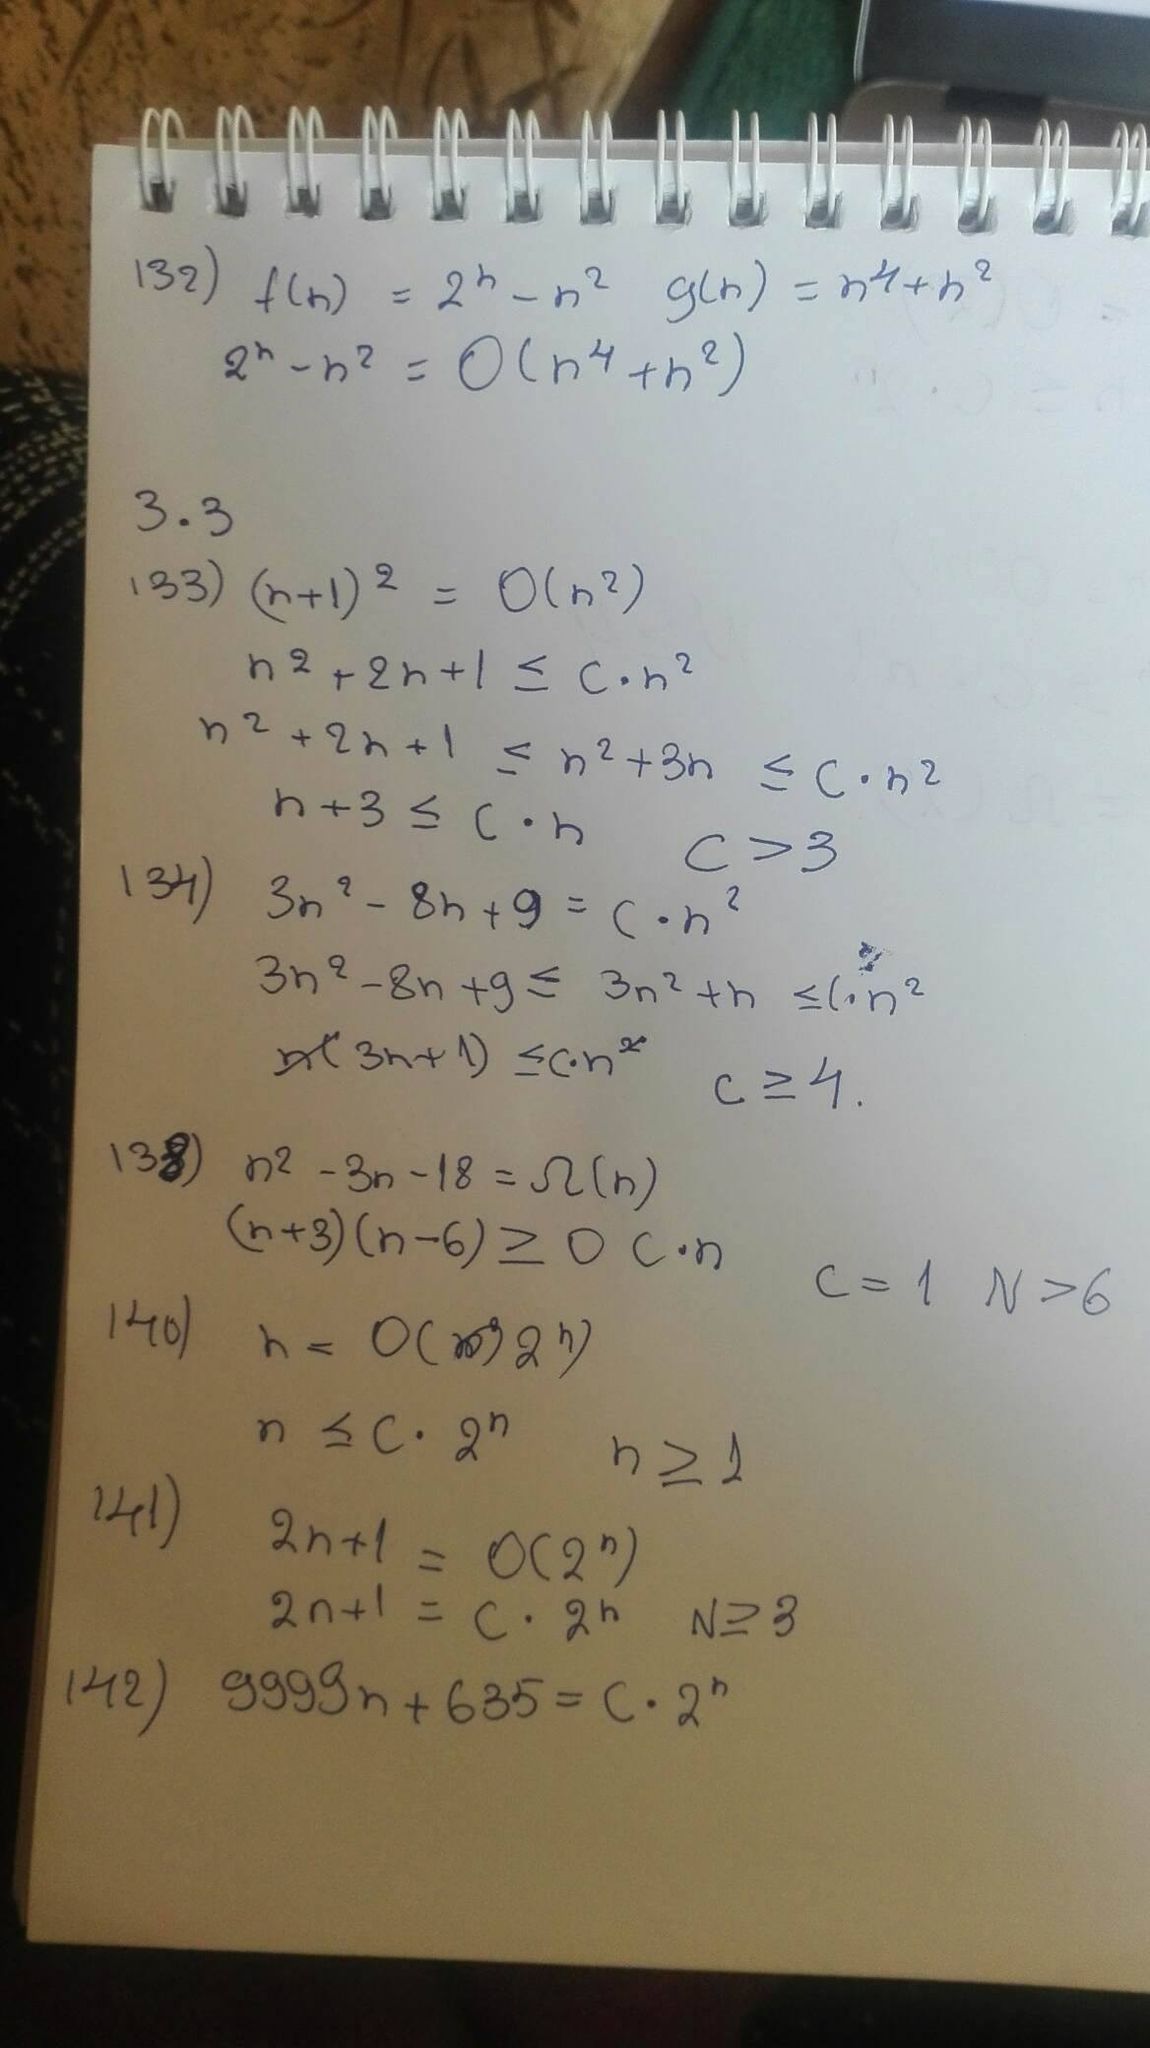 132) f(n) = 2ⁿ - n² g(n) = n⁴ + n²
2ⁿ - n² = O(n⁴ + n²)
3.3
133) (n+1)² = O(n²)
n² + 2n + 1 ≤ C·n²
n² + 2n + 1 ≤ n² + 3n ≤ C·n²
n + 3 ≤ C·n C > 3
134) 3n² - 8n + 9 = C·n²
3n² - 8n + 9 ≤ 3n² + n ≤ C·n²
n(3n+1) ≤ C·n² C ≥ 4.
138) n² - 3n - 18 = Ω(n)
(n+3)(n-6) ≥ 0 C·n C = 1 N > 6
140) n = O(2ⁿ)
n ≤ C·2ⁿ n ≥ 1
141) 2n+1 = O(2ⁿ)
2n+1 = C·2ⁿ N ≥ 3
142) 9999n + 635 = C·2ⁿ